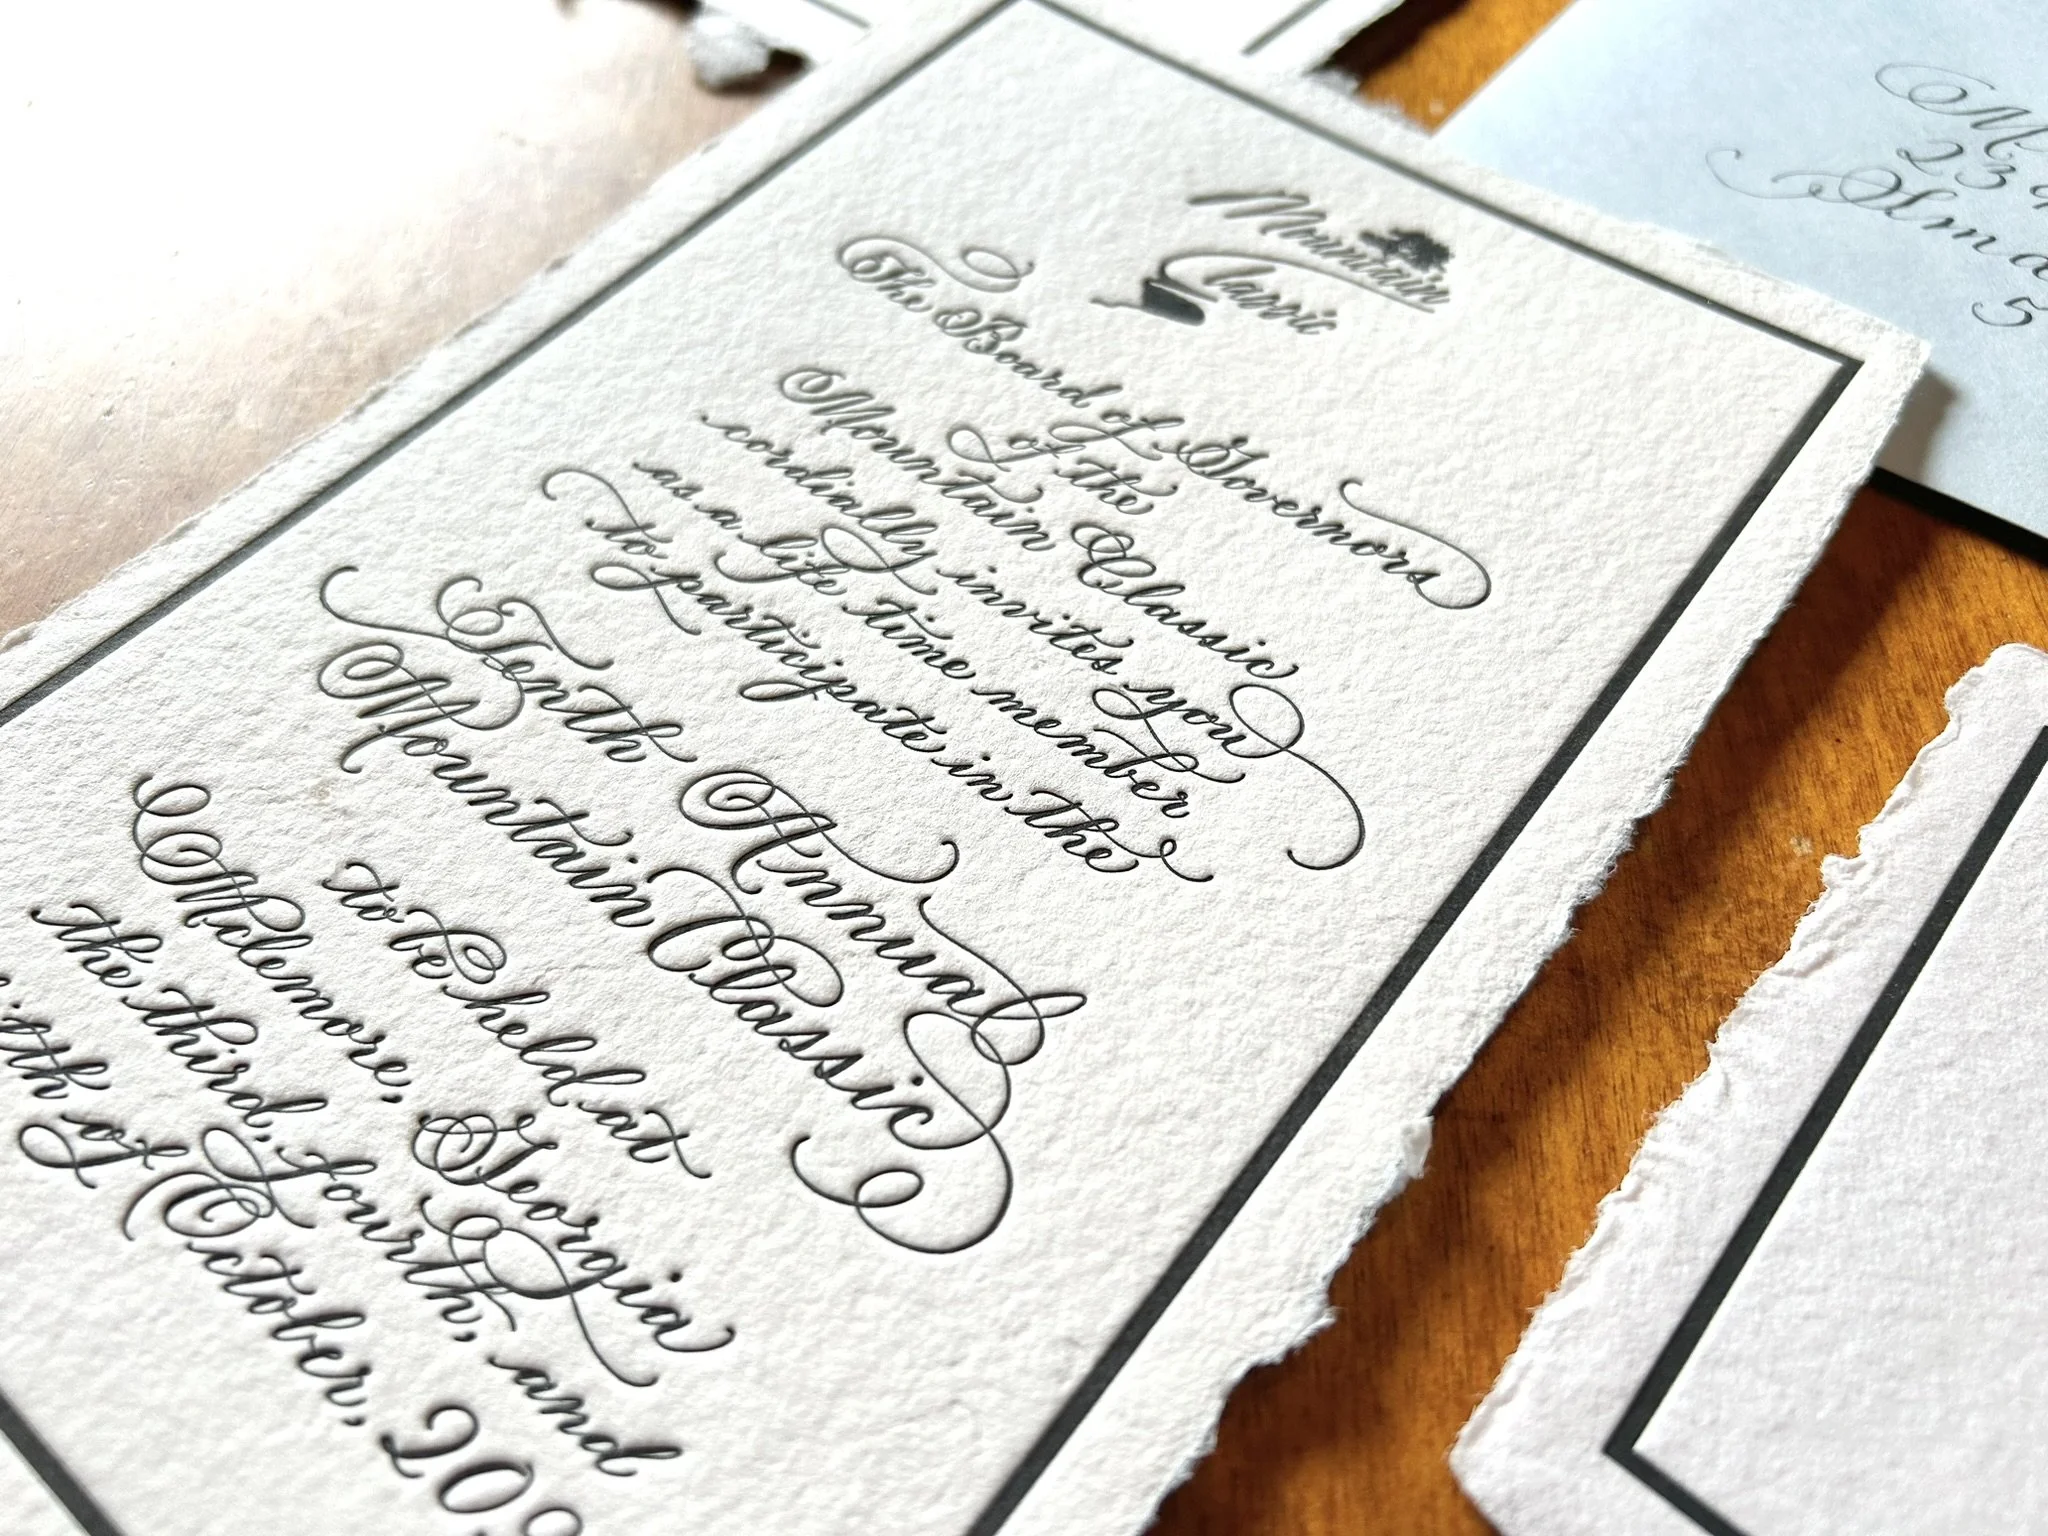 Mountain
Classic
The Board of Governors
of the
Mountain Classic
cordially invites you
as a life time member
to participate in the
Tenth Annual
Mountain Classic
to be held at
Mclemore, Georgia
the third, fourth, and
of October,